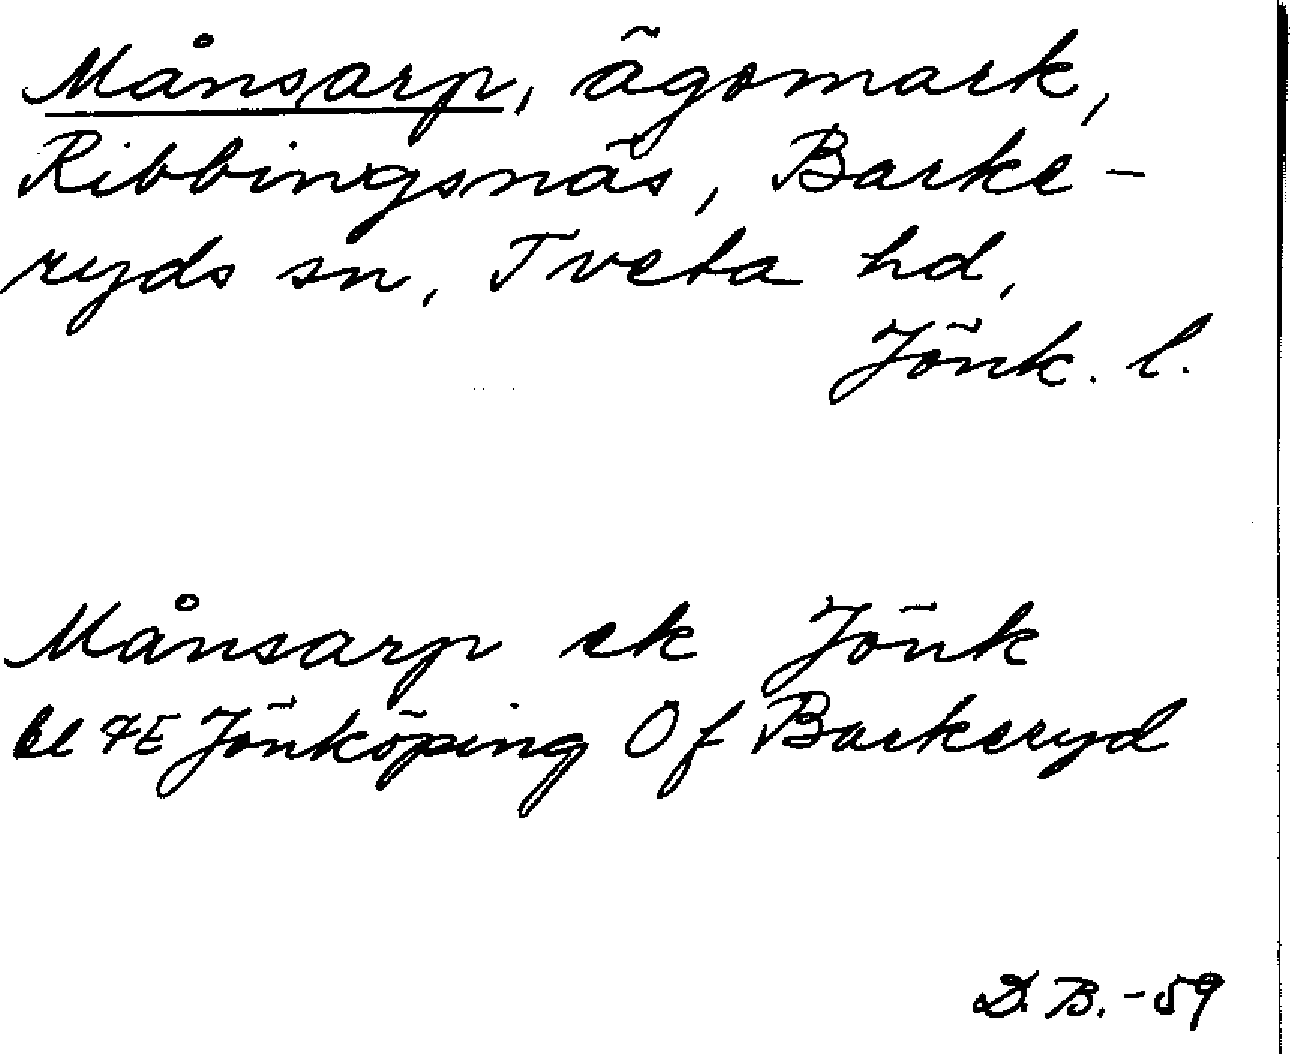 Månsarp, ägomark,
Ribbingsnäs, Barke-
ryds sn, Tveta hd,
Jönk. l.
Månsarp ek Jönk
bl 7E Jönköping Of Barkeryd
D.B.-59